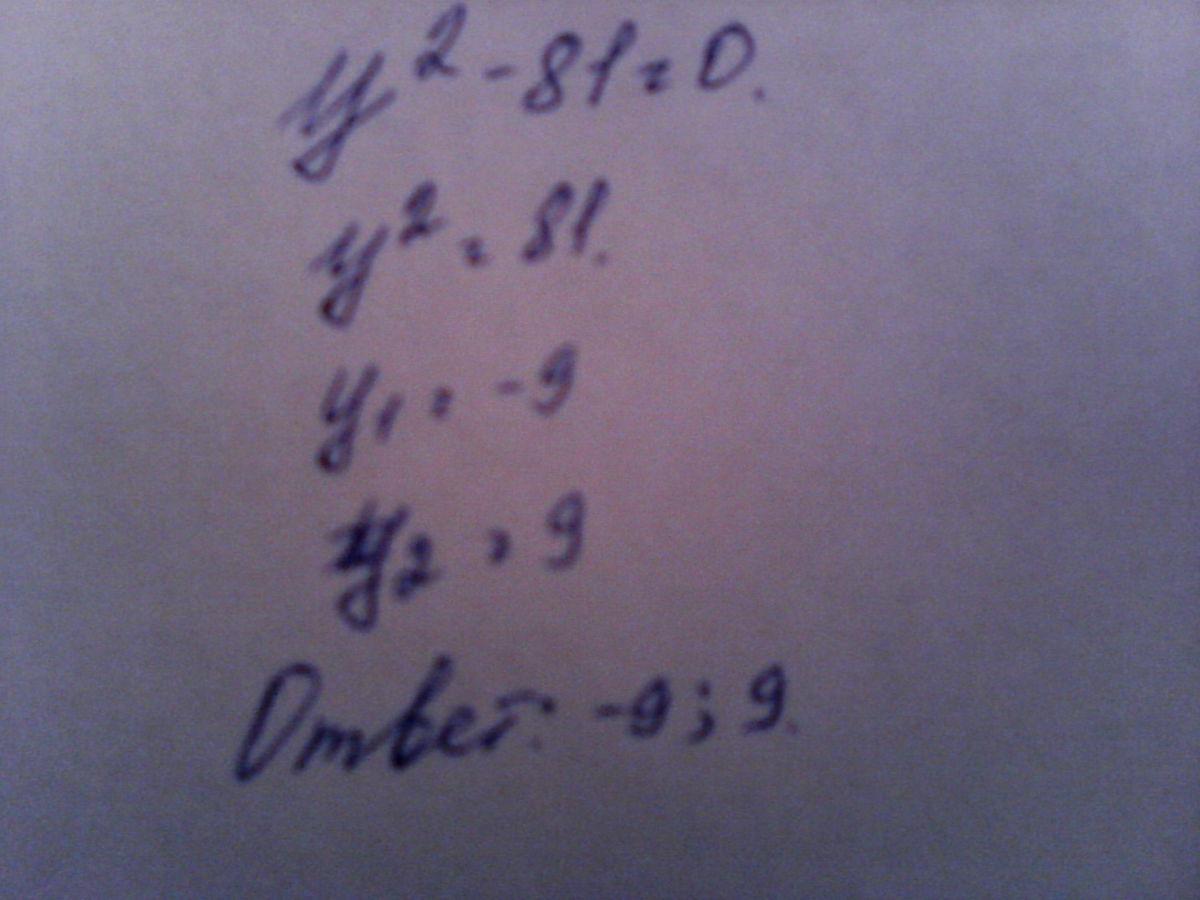 y² - 81 = 0.
y² = 81.
y₁ = -9
y₂ = 9
Ответ: -9; 9.